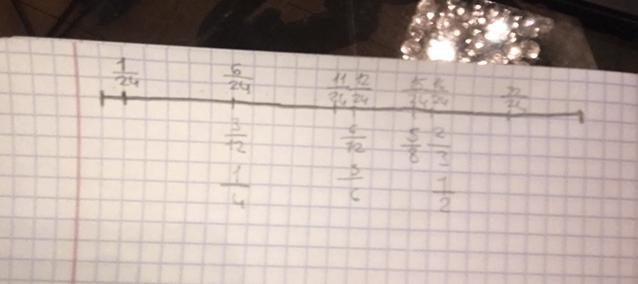 1/24 6/24 11/24 12/24 15/24 16/24
3/12 6/12 5/8 2/3
1/4 3/6 1/2